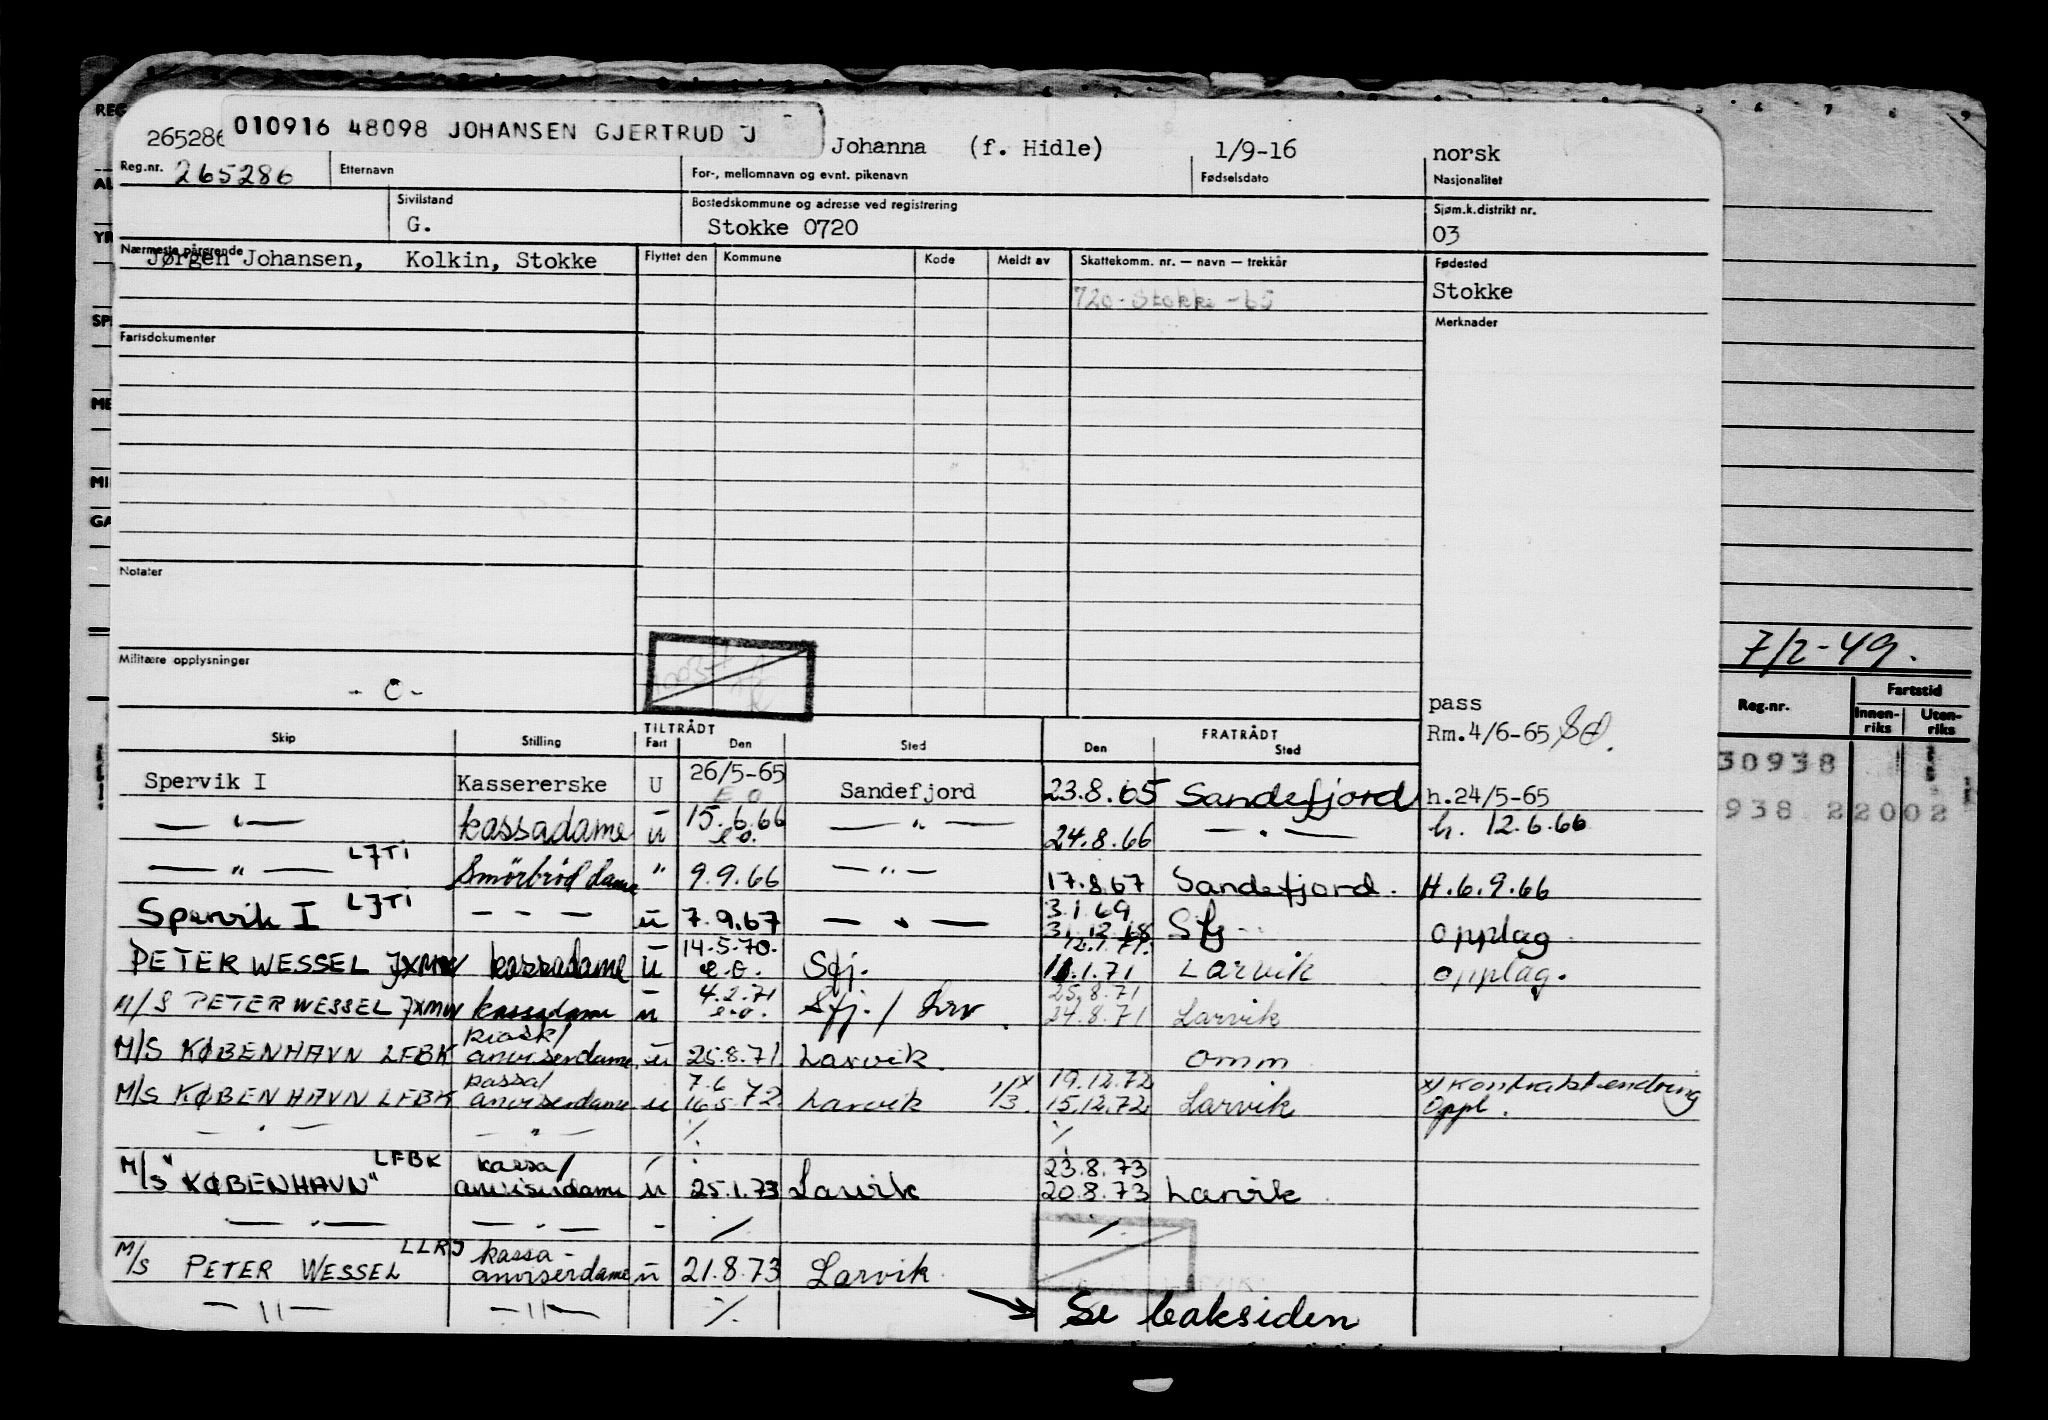 265286 010916 48098 JOHANSEN GJERTRUD J Johanna (f. Hidle) 1/9-16 norsk
Reg.nr. 265286 Etternavn For-, mellomnavn og evnt. pikenavn Fødselsdato Nasjonalitet
Sivilstand Bostedskommune og adresse ved registrering Sjøm.k.distrikt nr.
G. Stokke 0720 03
Nærmeste pårørende Flyttet den Kommune Kode Meldt av Skattekomm. nr. — navn — trekkår Fødested
Jørgen Johansen, Kolkin, Stokke
720-Stokke-65 Stokke
Merknader
Fartsdokumenter
Notater
7/2-49.
Militære opplysninger
- O -
pass
Reg.nr. Fartstid
Innen-riks Uten-riks
TILTRÅDT FRATRÅDT Rm.4/6-65
Skip Stilling Fart Den Sted Den Sted
30938
Spervik I Kassererske U 26/5-65 Sandefjord 23.8.65 Sandefjord h.24/5-65
E O
938 22002
— " — kassadame u 15.6.66 — " — 24.8.66 — " — h. 12.6.66
e.o.
— " — LJTI Smörbröd dame " 9.9.66 — " — 17.8.67 Sandefjord. H.6.9.66
Spervik I LJTI — — — u 7.9.67 — " — 3.1.69 Sfj opplag
31.12.68
PETER WESSEL JXMW kassadame u 14.5.70. Sfj. 12.1.71. Larvik opplag.
e.o. 11.1.71
M/S PETER WESSEL JXMW kassadame u 4.2.71 Sfj./Lrv 25.8.71
e.o. 24.8.71 Larvik
M/S KØBENHAVN LFBK kiosk/anviserdame u 25.8.71 Larvik. omm
M/S KØBENHAVN LFBK kassa/anviserdame u 7.6 16.5.72 Larvik 1/3. x 19.12.72 15.12.72 Larvik x/ Kontraktendring
Oppl.
— " — — " — ./. ./.
M/S "KØBENHAVN" LFBK kassa/anviserdame u 25.1.73 Larvik 23.8.73 20.8.73 Larvik
— " — — " — - ./. ./.
M/S PETER WESSEL LLRJ kassa-anviserdame u 21.8.73 Larvik
— " — — " — ./. → Se baksiden